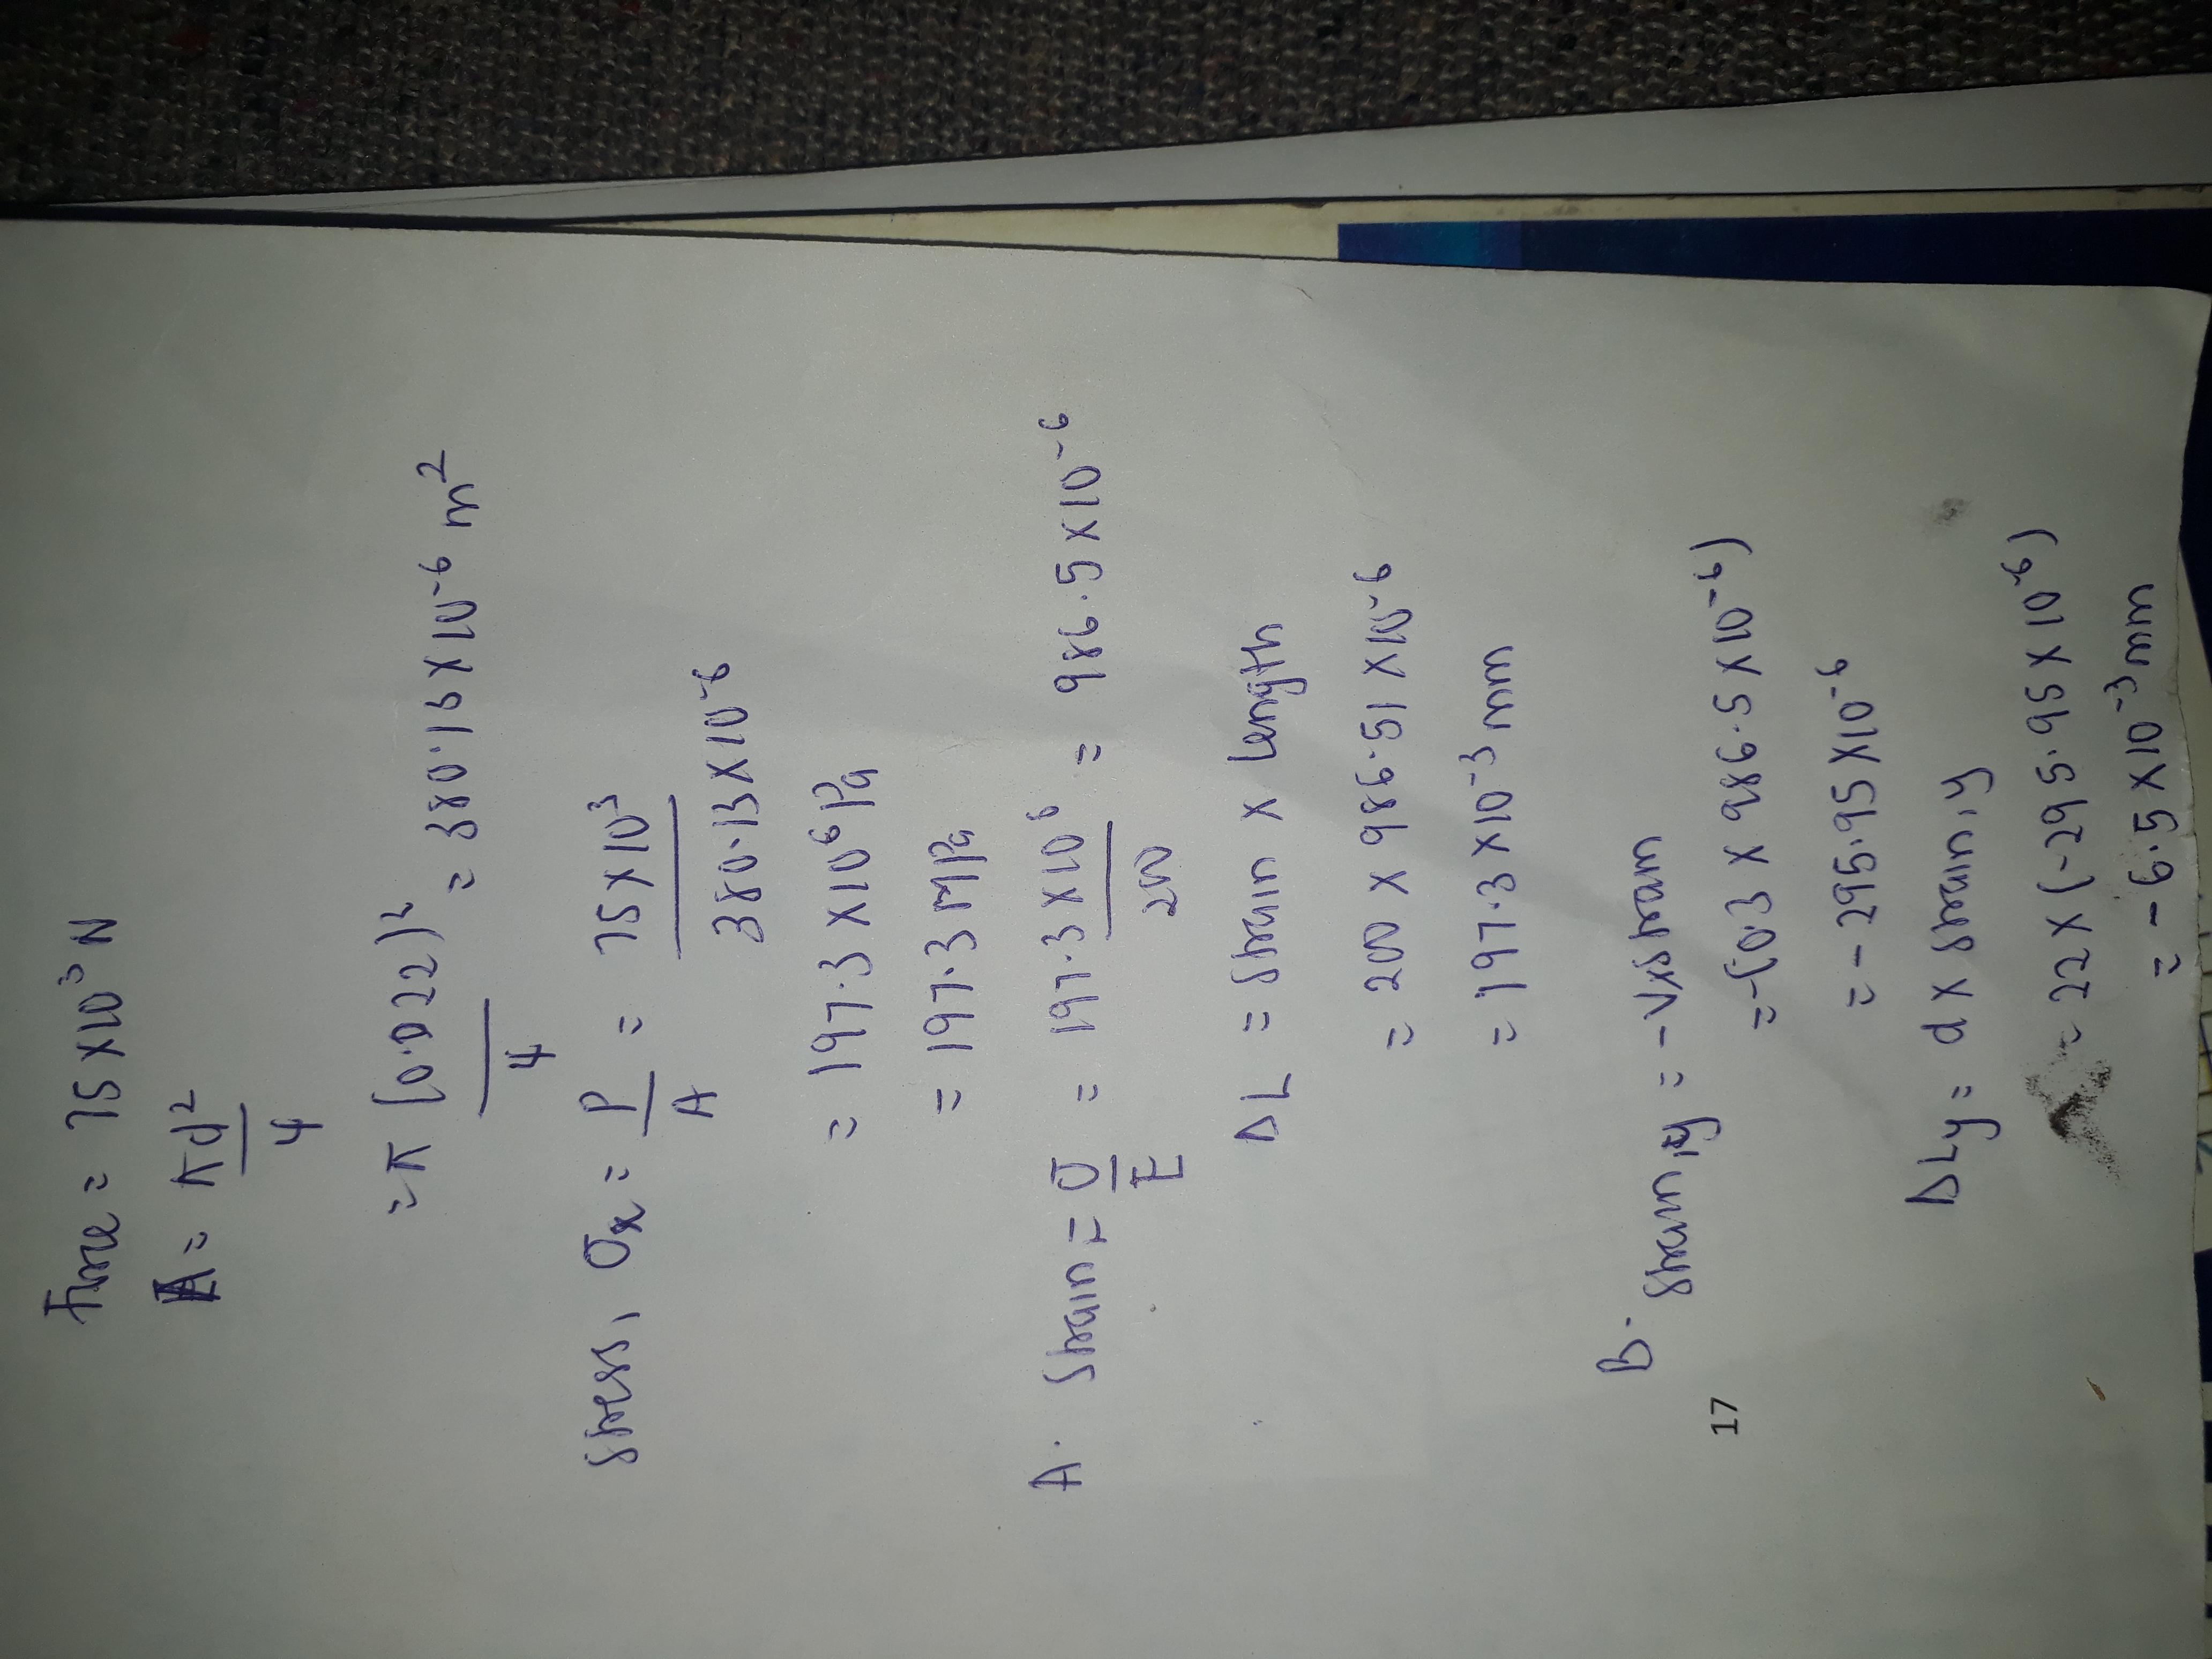 Force = 75 x 10³ N
A = πd²/4
= π (0.022)²/4 = 380.13 x 10⁻⁶ m²
Stress, σx = P/A = 75 x 10³/380.13 x 10⁻⁶
= 197.3 x 10⁶ Pa
= 197.3 MPa
A. Strain = σ/E = 197.3 x 10⁶/200 = 986.5 x 10⁻⁶
ΔL = Strain x length
= 200 x 986.51 x 10⁻⁶
= 197.3 x 10⁻³ mm
B. Strain, y = -V x Strain
= -(0.3 x 986.5 x 10⁻⁶)
= - 295.95 x 10⁻⁶
17
ΔLy = d x Strain, y
= 22 x (-295.95 x 10⁻⁶)
= - 6.5 x 10⁻³ mm